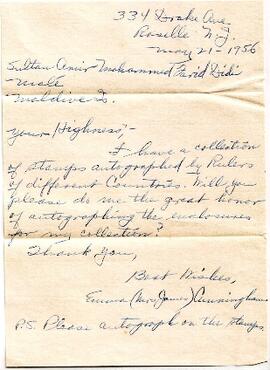 334 Drake Ave
Roselle N.J.
May 21 - 1956
Sultan Amir Mohammed Farid Didi
Male
Maldives.
Your Highness;-
I have a collection
of stamps autographed by Rulers
of different Countries. Will you
please do me the great honor
of autographing the enclosures
for my collection?
Thank You,
Best Wishes,
Emma (Mrs. James) Cunningham
P.S. Please autograph on the stamps.